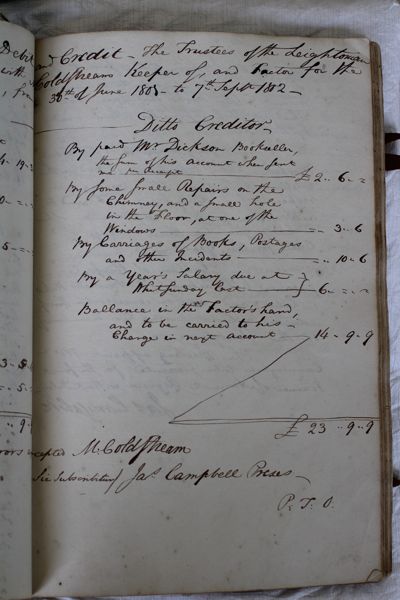 and Credit - The Trustees of the Leightonian
Coldstream Keeper of, and Factor for the
30th of June 1801 - to 7th Septr 1802 -
Ditto Creditor
By paid Mr Dickson Bookseller,
the sum of his account when sent
me per receipt £ 2 .. 6 - =
By some small Repairs on the
Chimney, and a small hole
in the Floor, at one of the
Windows = = 3 .. 6
By Carriages of Books, Postages
and other Incidents = .. 10 .. 6
By a Year's Salary due at
Whitsunday last 6 - = - =
Ballance in the Factor's hand,
and to be carried to his
Charge in next account 14 .. 9 .. 9
£ 23 .. 9 .. 9
excepted M. Coldstream
Sic Subscribitur Jas Campbell Preses
P. T. O.